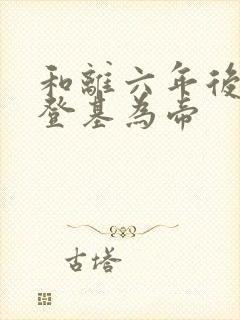 和離六年後
登基為帝
古塔